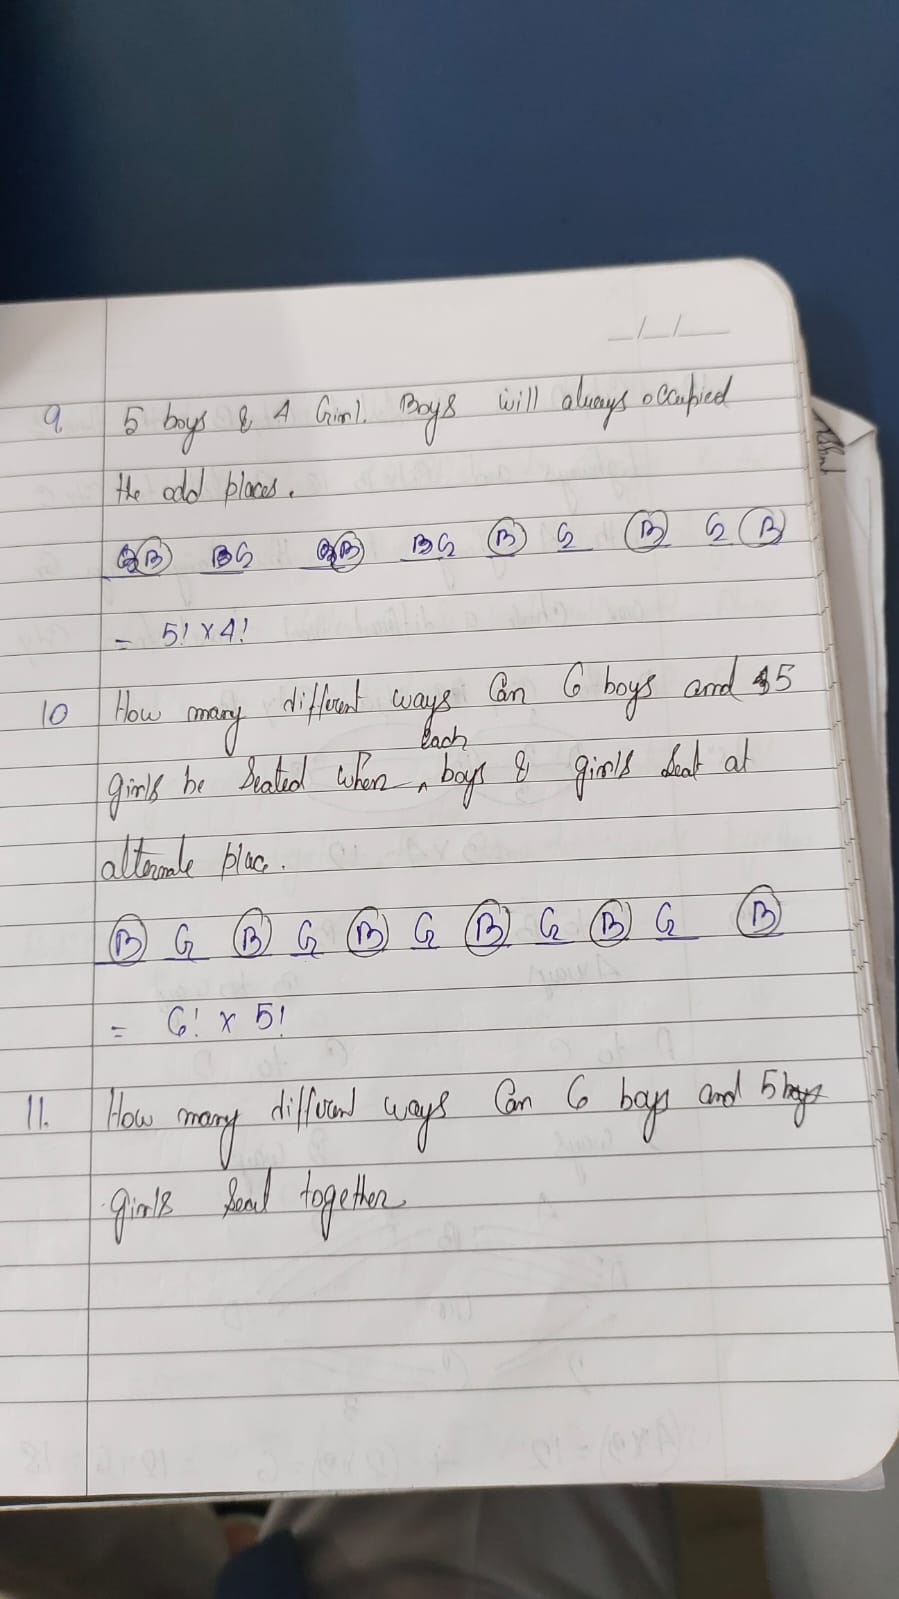 _/_/__
9. 5 boys & 4 Girl. Boys will always occupied
the odd places.
B BG B BG B G B G B
= 5! x 4!
10 How many different ways Can 6 boys and 5
each
girls be Seated when ^ boys & girls Seat at
alternate place.
B G B G B G B G B G B
= 6! x 5!
11. How many different ways Can 6 boys and 5 boys
girls Seat together